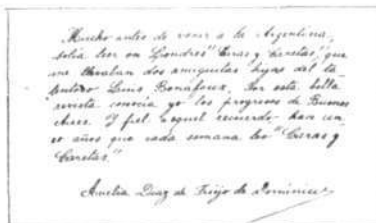 Mucho antes de venir a la Argentina,
solía leer en Londres "Caras y Caretas", que
me llevaban dos amiguitas hijas del ta
lentoso Luis Bonafoux. Por esta bella
revista conocía yo los progresos de Buenos
Aires. Y fiel a aquel recuerdo hace
años que cada semana leo "Caras y
Caretas."
Amelia Diaz de Trijo de